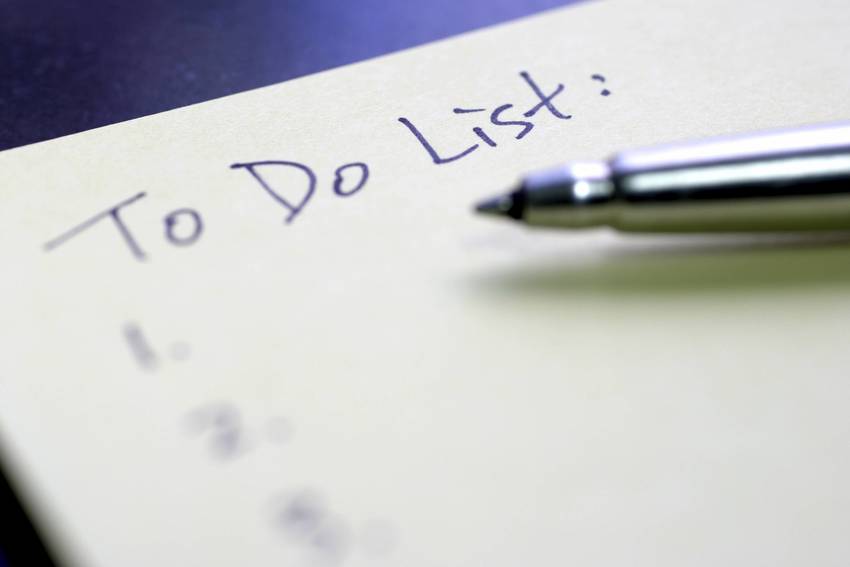 To Do List:
1.
2.
3.